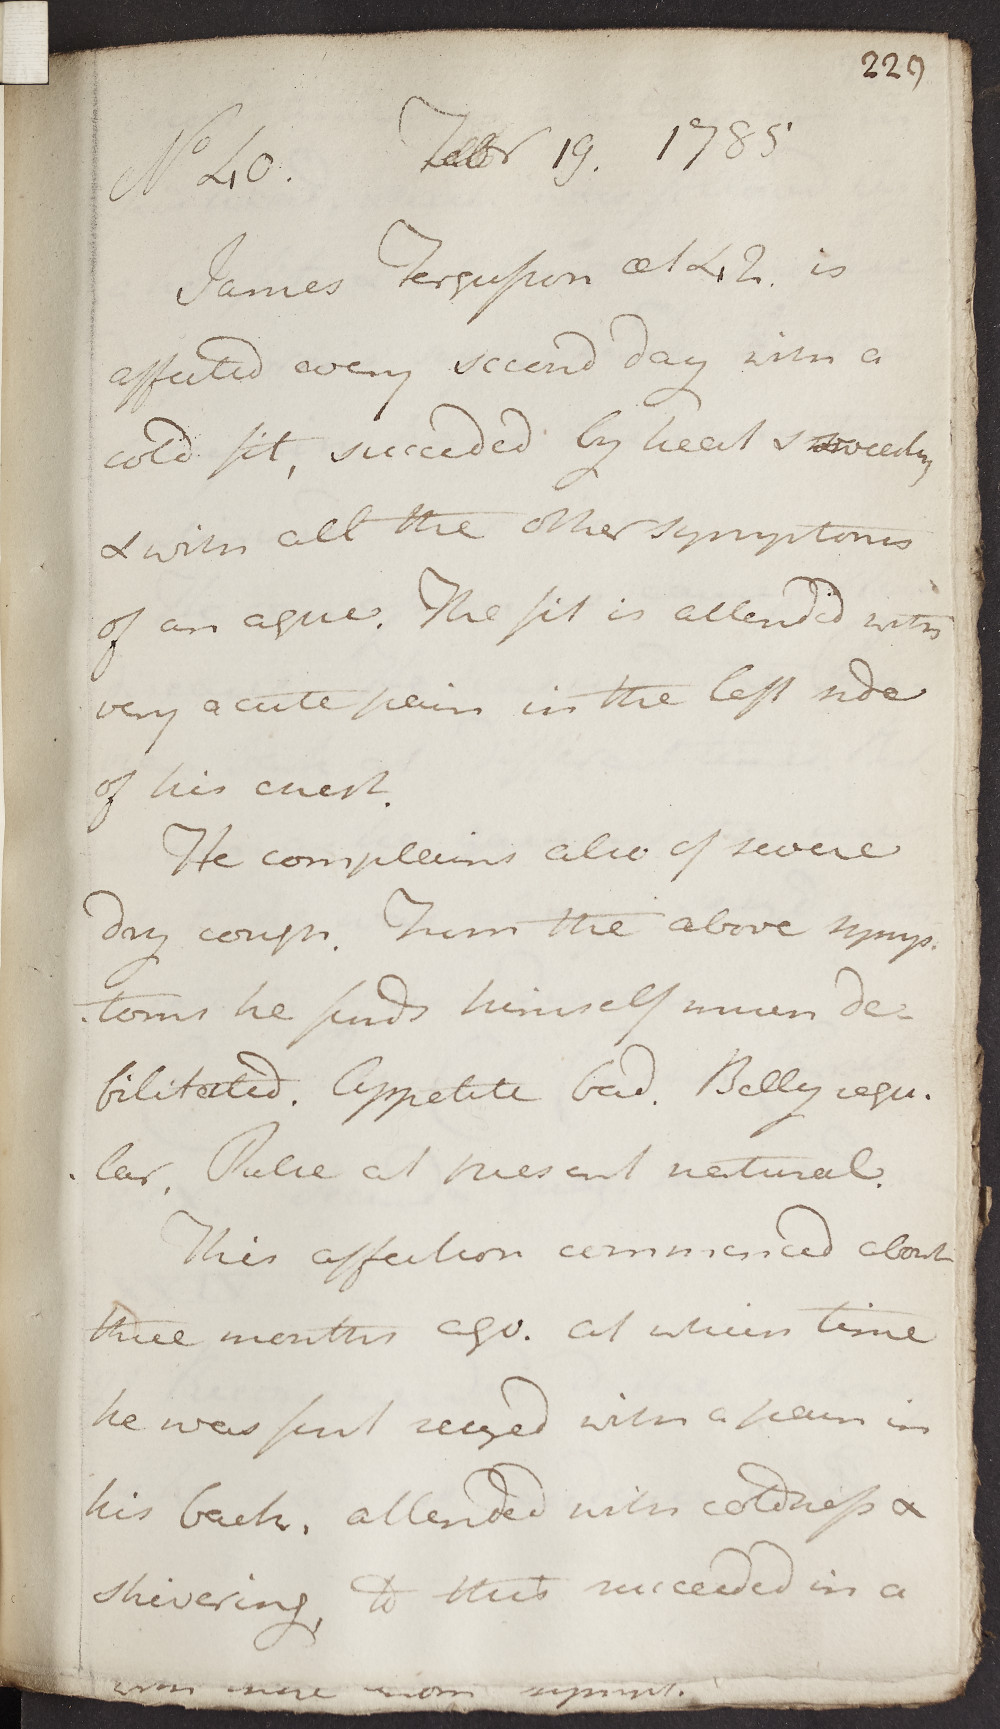 229
No 40. Febr 19. 1785
James Fergusson æt 42. is
affected every second day with a
cold fit, succeeded by heat & sweating
& with all the other symptoms
of an ague. The fit is attended with
very acute pain in the left side
of his chest.
He complains also of severe
dry cough. From the above symp-
-toms he finds himself much de-
bilitated. Appetite bad. Belly regu-
-lar, Pulse at present natural.
This affection commenced about
three months ago. at which time
he was first seized with a pain in
his back, attended with coldness &
shivering, to this succeeded in a